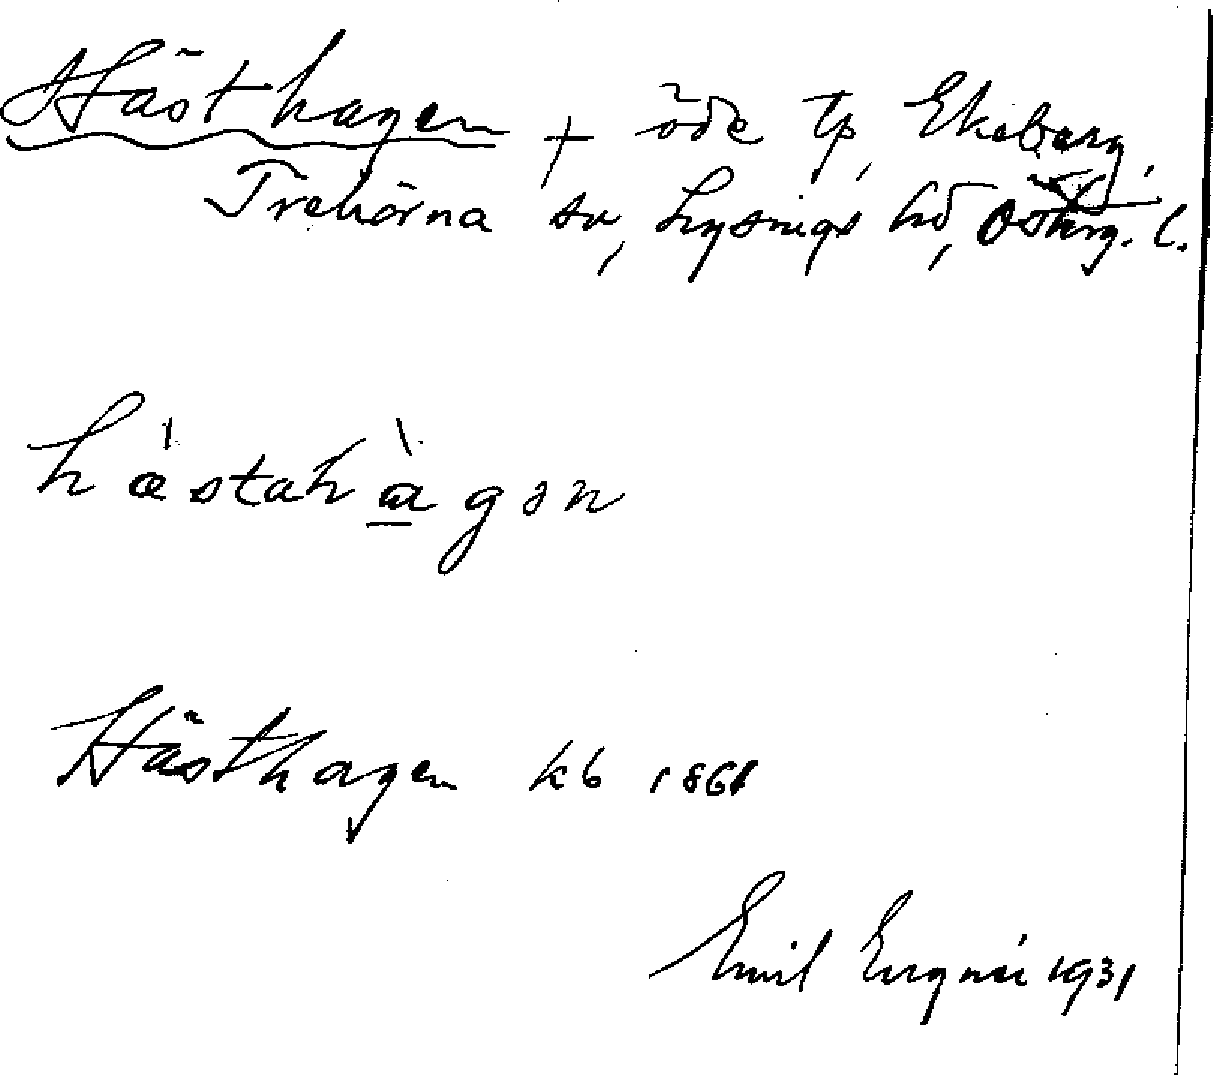 Hästhagen + öde tp, Ekeberg,
Trehörna sn, Lysings hd, Österg. l.
hæ̀stahàgən
Hästhagen kb 1861
Emil 1931